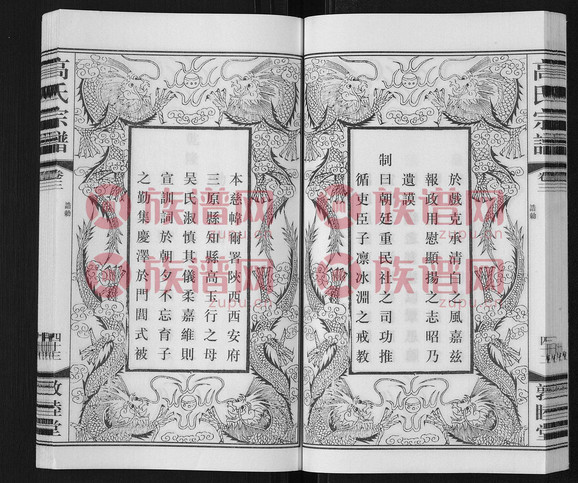 於戲克承清白之風嘉兹
報政用慰顯揚之志昭乃
遺謨
制曰朝廷重民社之司功推
循吏臣子凛冰淵之戒教
本慈幃爾署陝西西安府
三原縣知縣高玉行之母
吳氏淑慎其儀柔嘉維則
宣訓詞於朝夕不忘育子
之勤集慶澤於門閭式被
高氏宗譜
卷三
誥勅
敦睦堂
高氏宗譜
卷三
誥勅
敦睦堂
族谱网
zupu.cn
族谱网
zupu.cn
族谱网
zupu.cn
族谱网
zupu.cn